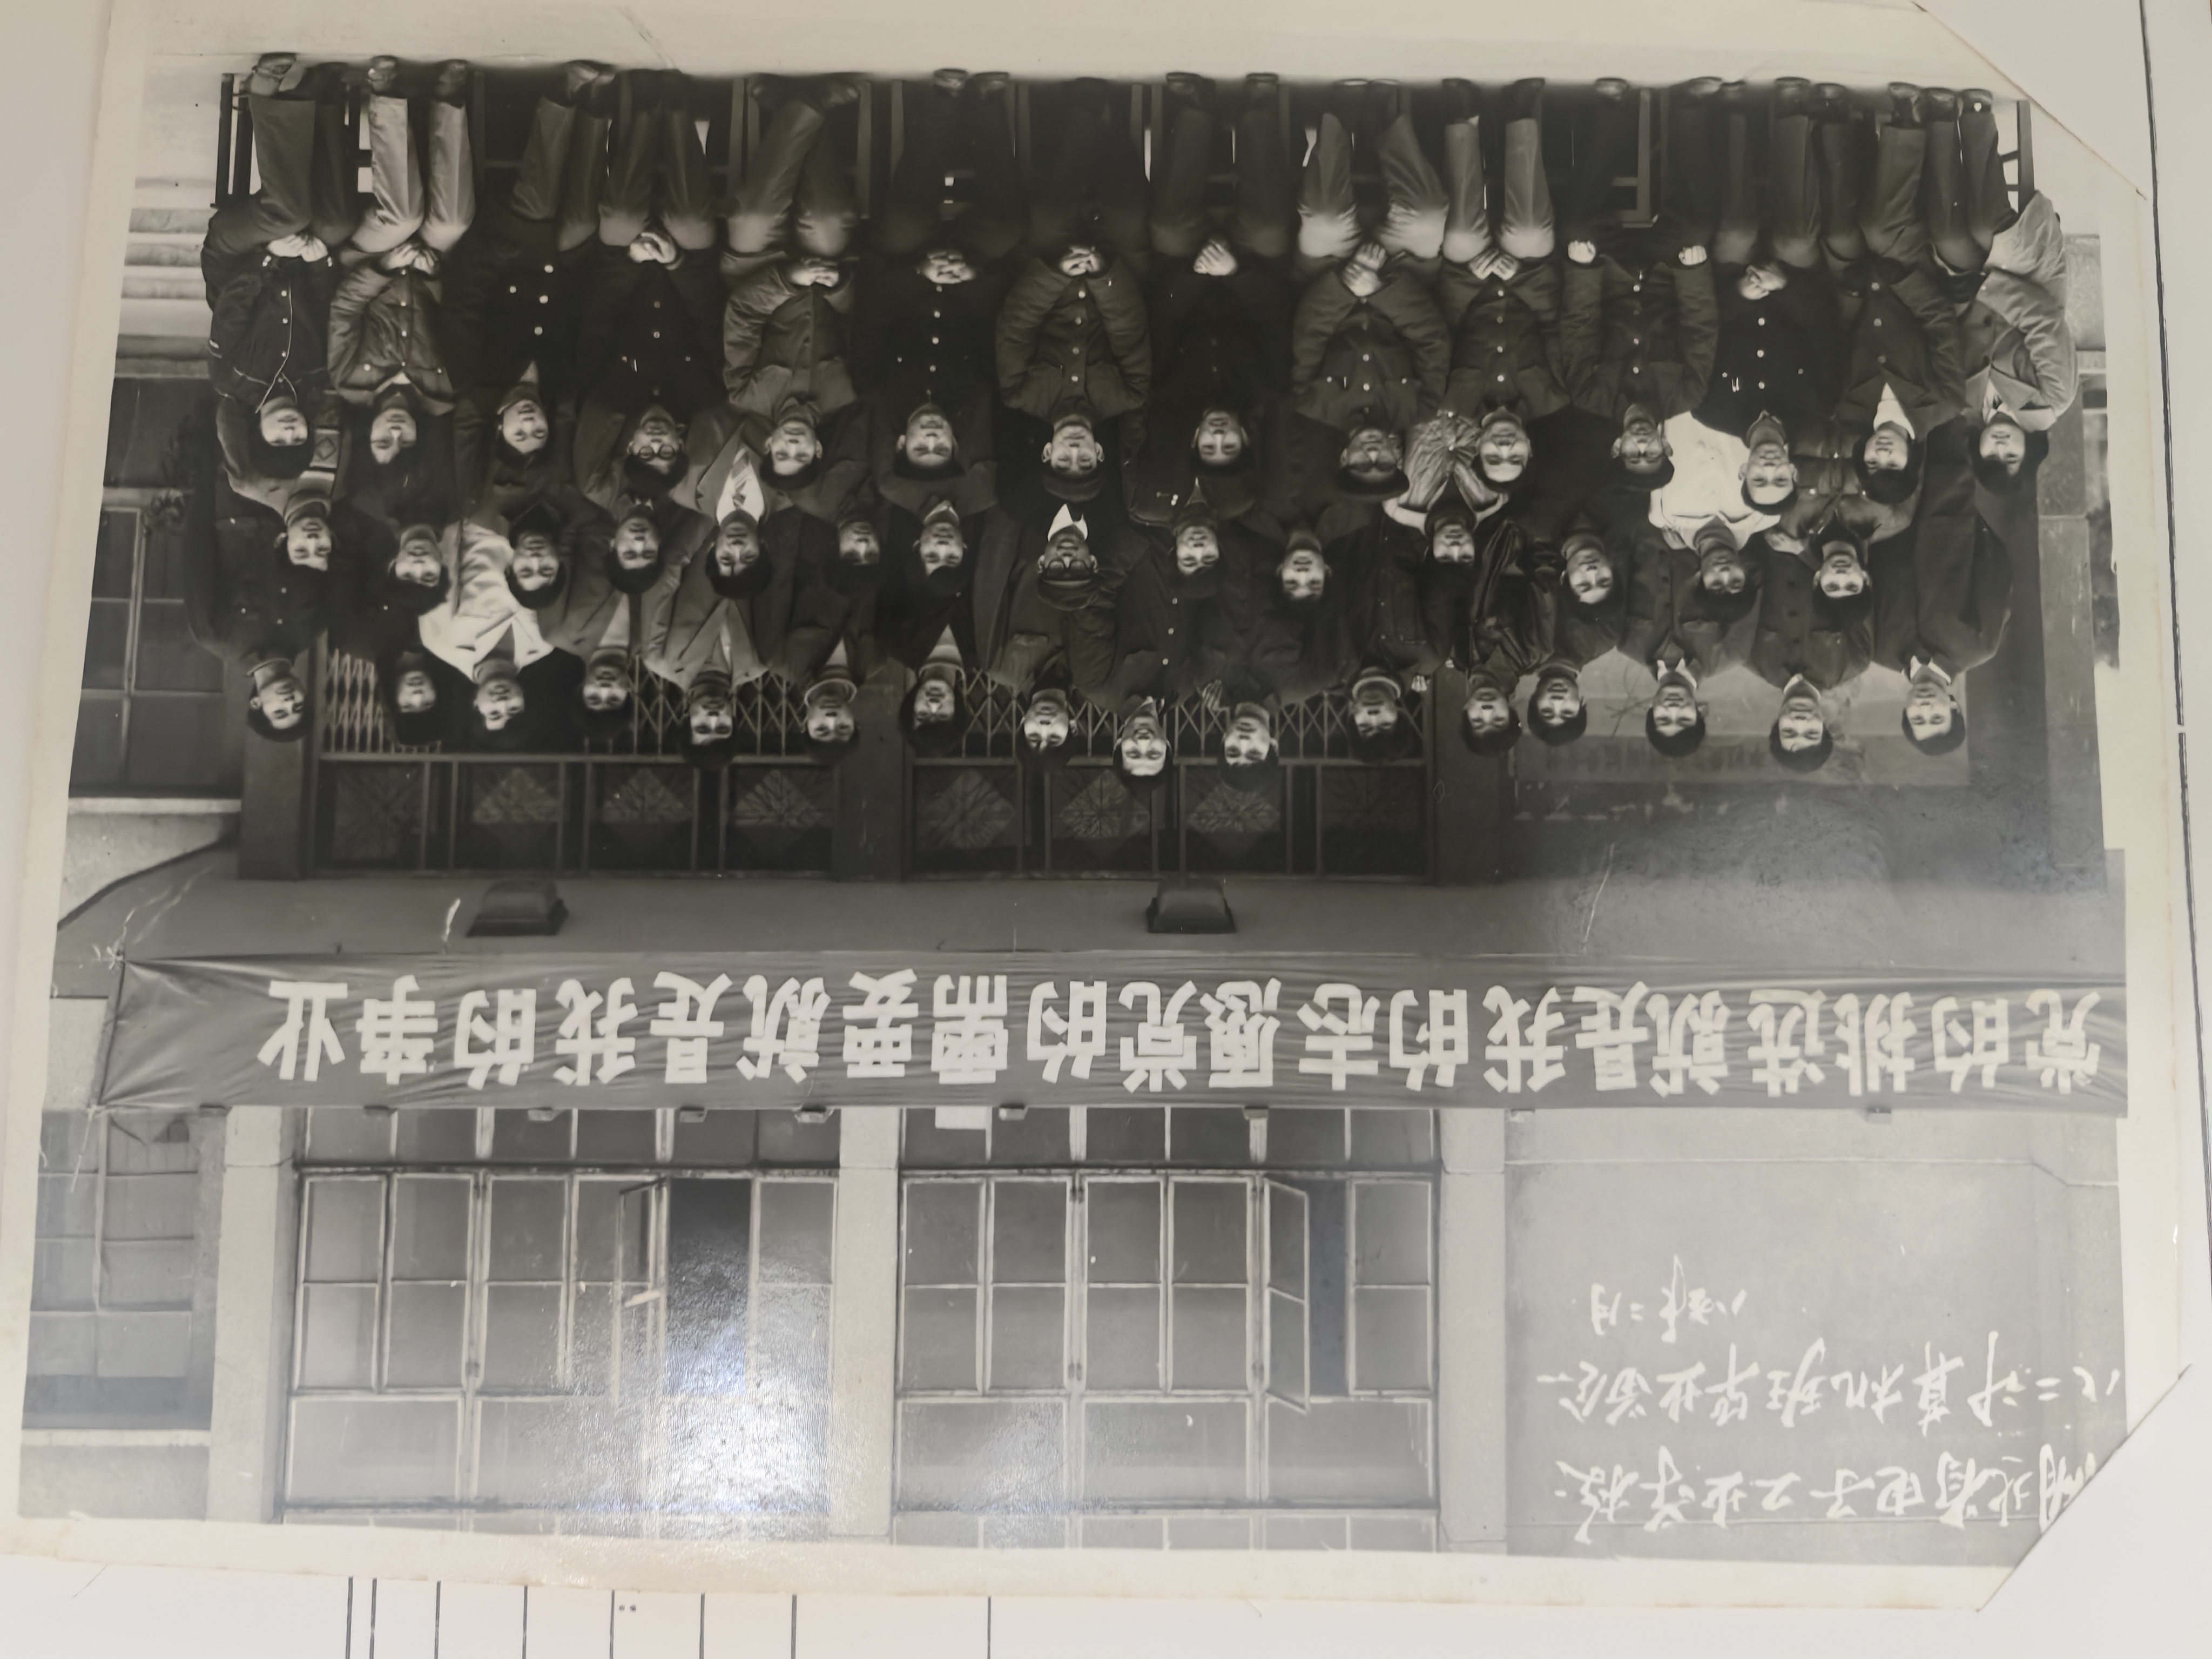 湖北省电子工业学校
八二计算机班毕业留念
八五年二月
党的挑选就是我的志愿党的需要就是我的事业